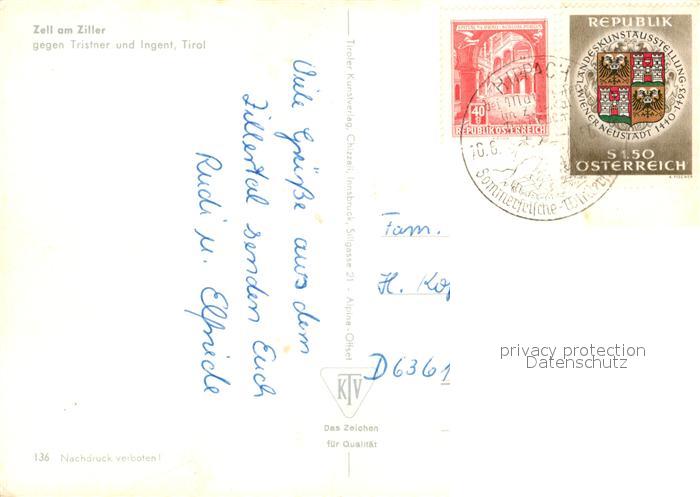 Zell am Ziller
gegen Tristner und Ingent, Tirol
Viele Grüße aus dem
Zillertal senden Euch
Rudi u. Elfriede
Tiroler Kunstverlag, Chizzali, Innsbruck, Sillgasse 21 - Alpina-Offset
40 g
REPUBLIK ÖSTERREICH
REPUBLIK
LANDESKUNSTAUSSTELLUNG
WIENER NEUSTADT 1440-1493
S 1.50
ÖSTERREICH
Sommerfrische
Fam.
H.
D6361
privacy protection
Datenschutz
KTV
Das Zeichen
für Qualität
136 Nachdruck verboten!